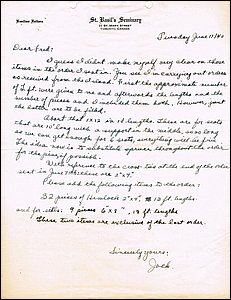 Basilian Fathers
St. Basil's Seminary
TORONTO, CANADA
Tuesday June 11/40
Dear Fred:
I guess I didn't make myself very clear on those
items in the order I sent in. You see I'm carrying out orders
as received from the Island. First the approximate number
of ft. were given to me and afterwards the lengths and the
number of pieces and I included them both. However, just
the latter are to be filled.
About that 1x12 in 12 lengths. these are for seats
that are 10' long with a support in the middle, so as long
as we can get enough for 6 seats, everything will be fine
The idea now is to substitute spruce throughout the order
for the pine if possible.
With reference to the last two at the end of the order
sent in June 7 there are 2"x4"
Please add the following items to the order:
32 pieces of Hemlock 2"x4" 12 ft. lengths.
and for sills: 9 pieces 6"x8", 18 ft. lengths
These two items are exclusive of the last order.
Sincerely yours,
Jack.